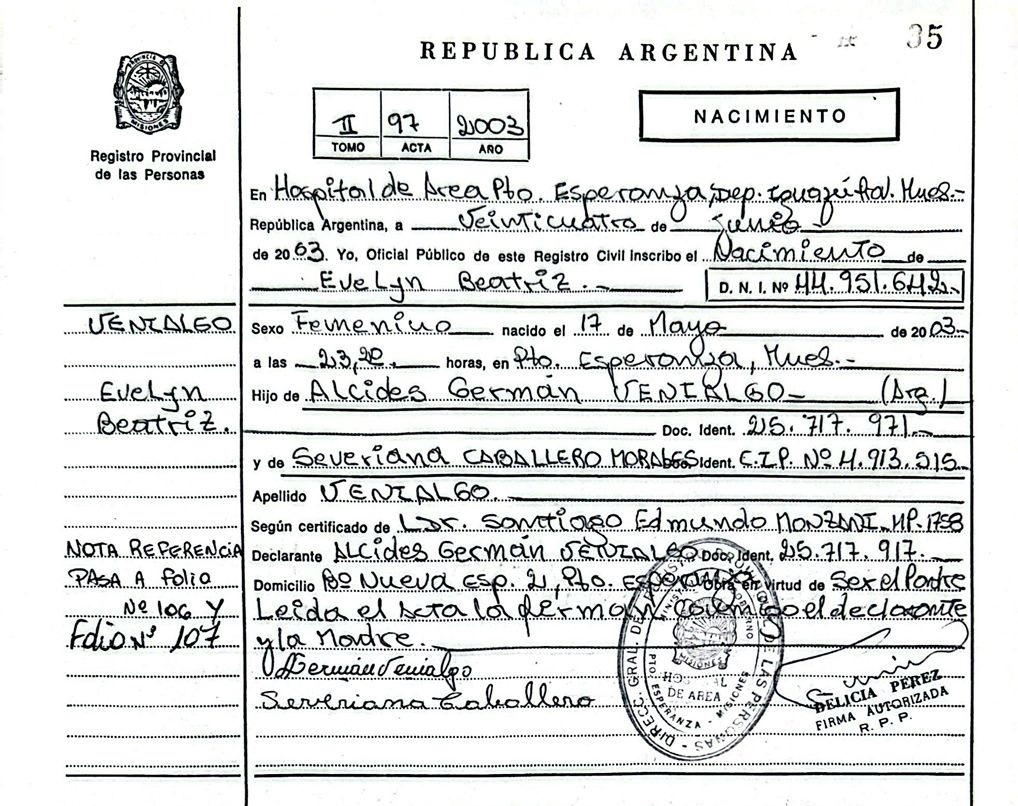 35
REPUBLICA ARGENTINA
PROVINCIA DE MISIONES
Registro Provincial
de las Personas
II 97 2003
TOMO ACTA AÑO
NACIMIENTO
En Hospital de Area Pto. Esperanza, Dep. Iguazú
República Argentina, a Veinticuatro de junio
de 2003. Yo, Oficial Público de este Registro Civil Inscribo el Nacimiento de
Evelyn Beatriz.
D. N. I. Nº 44.951.642
VENIALGO
Evelyn
Beatriz.
Sexo Femenino nacido el 17 de Mayo de 2003
a las 23,20, horas, en Pto. Esperanza, Mnes.
Hijo de Alcides Germán VENIALGO (Arg.)
Doc. Ident. 25.717.971
y de Severiana CABALLERO MORALES Doc. Ident. C.I.P. Nº 4.913.515
Apellido VENIALGO
Según certificado de Dr. Santiago Edmundo MONZANI. MP. 1758
NOTA REFERENCIA
PASA A folio
Nº 106 Y
Folio Nº 107
Declarante Alcides Germán VENIALGO Doc. Ident. 25.717.917.
Domicilio Bº Nueva Esp. 2, Pto. Esperanza Obra en virtud de Ser el Padre
Leida el Acta la firman conmigo el declarante
y la Madre.
Germán Venialgo
Severiana Caballero
DIRECC. GRAL. DE LAS PERSONAS
HOSPITAL
DE AREA
PTO. ESPERANZA - MISIONES
DELICIA PEREZ
FIRMA AUTORIZADA
R. P. P.